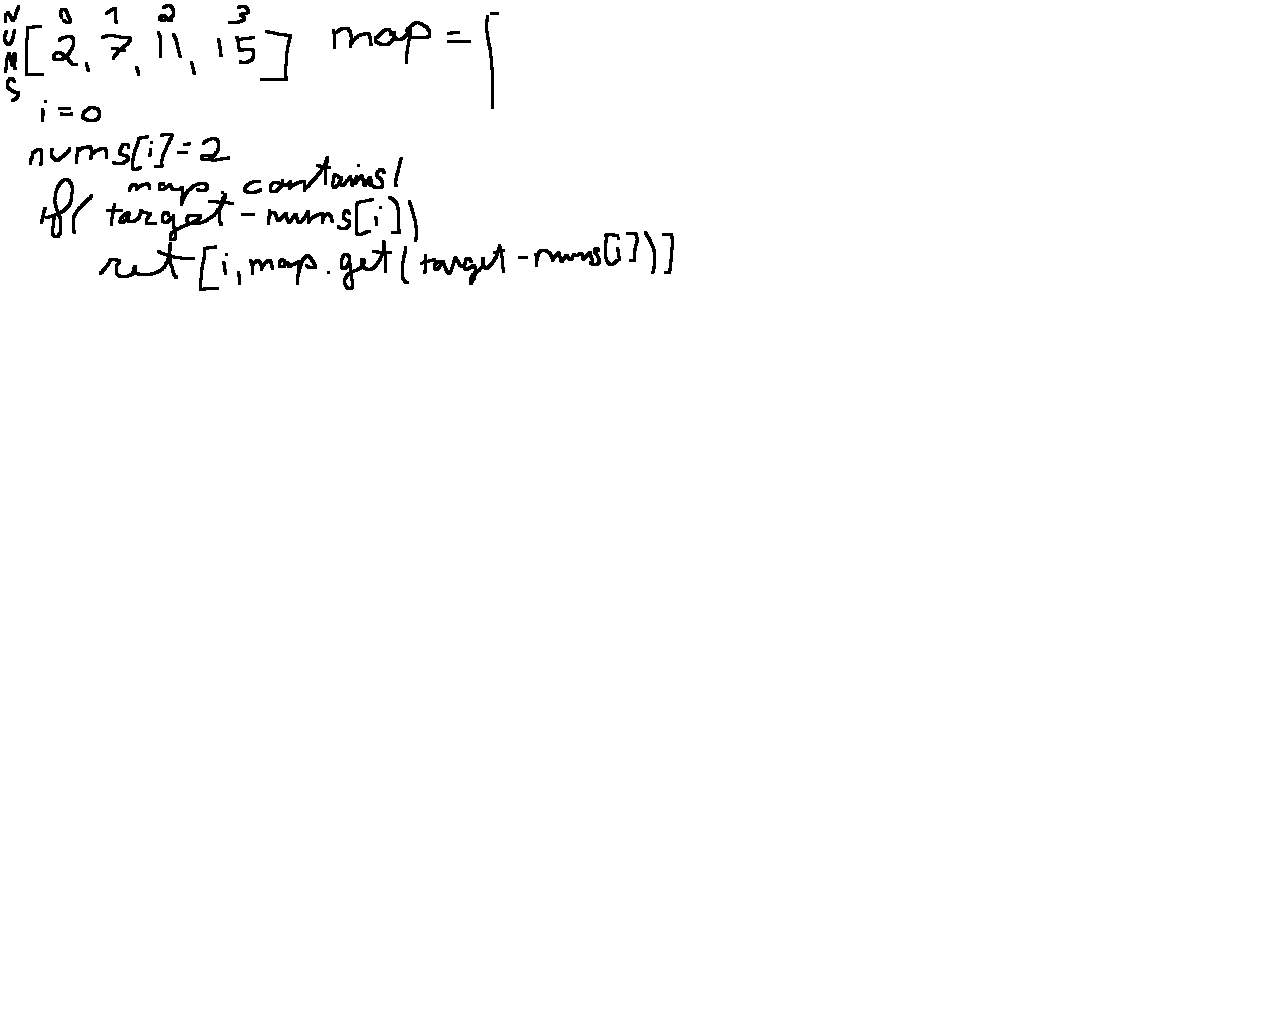 NUMS
0 1 2 3
[2, 7, 11, 15] map = [
i = 0
nums[i] = 2
map. contains(
if( target - nums[i])
ret [i, map.get(target - nums[i])]